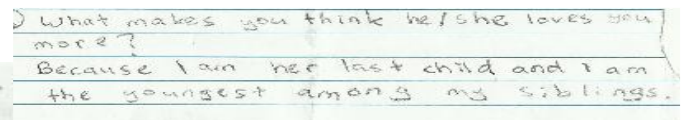 ) What makes you think he/she loves you
more?
Because I am her last child and I am
the youngest among my siblings.